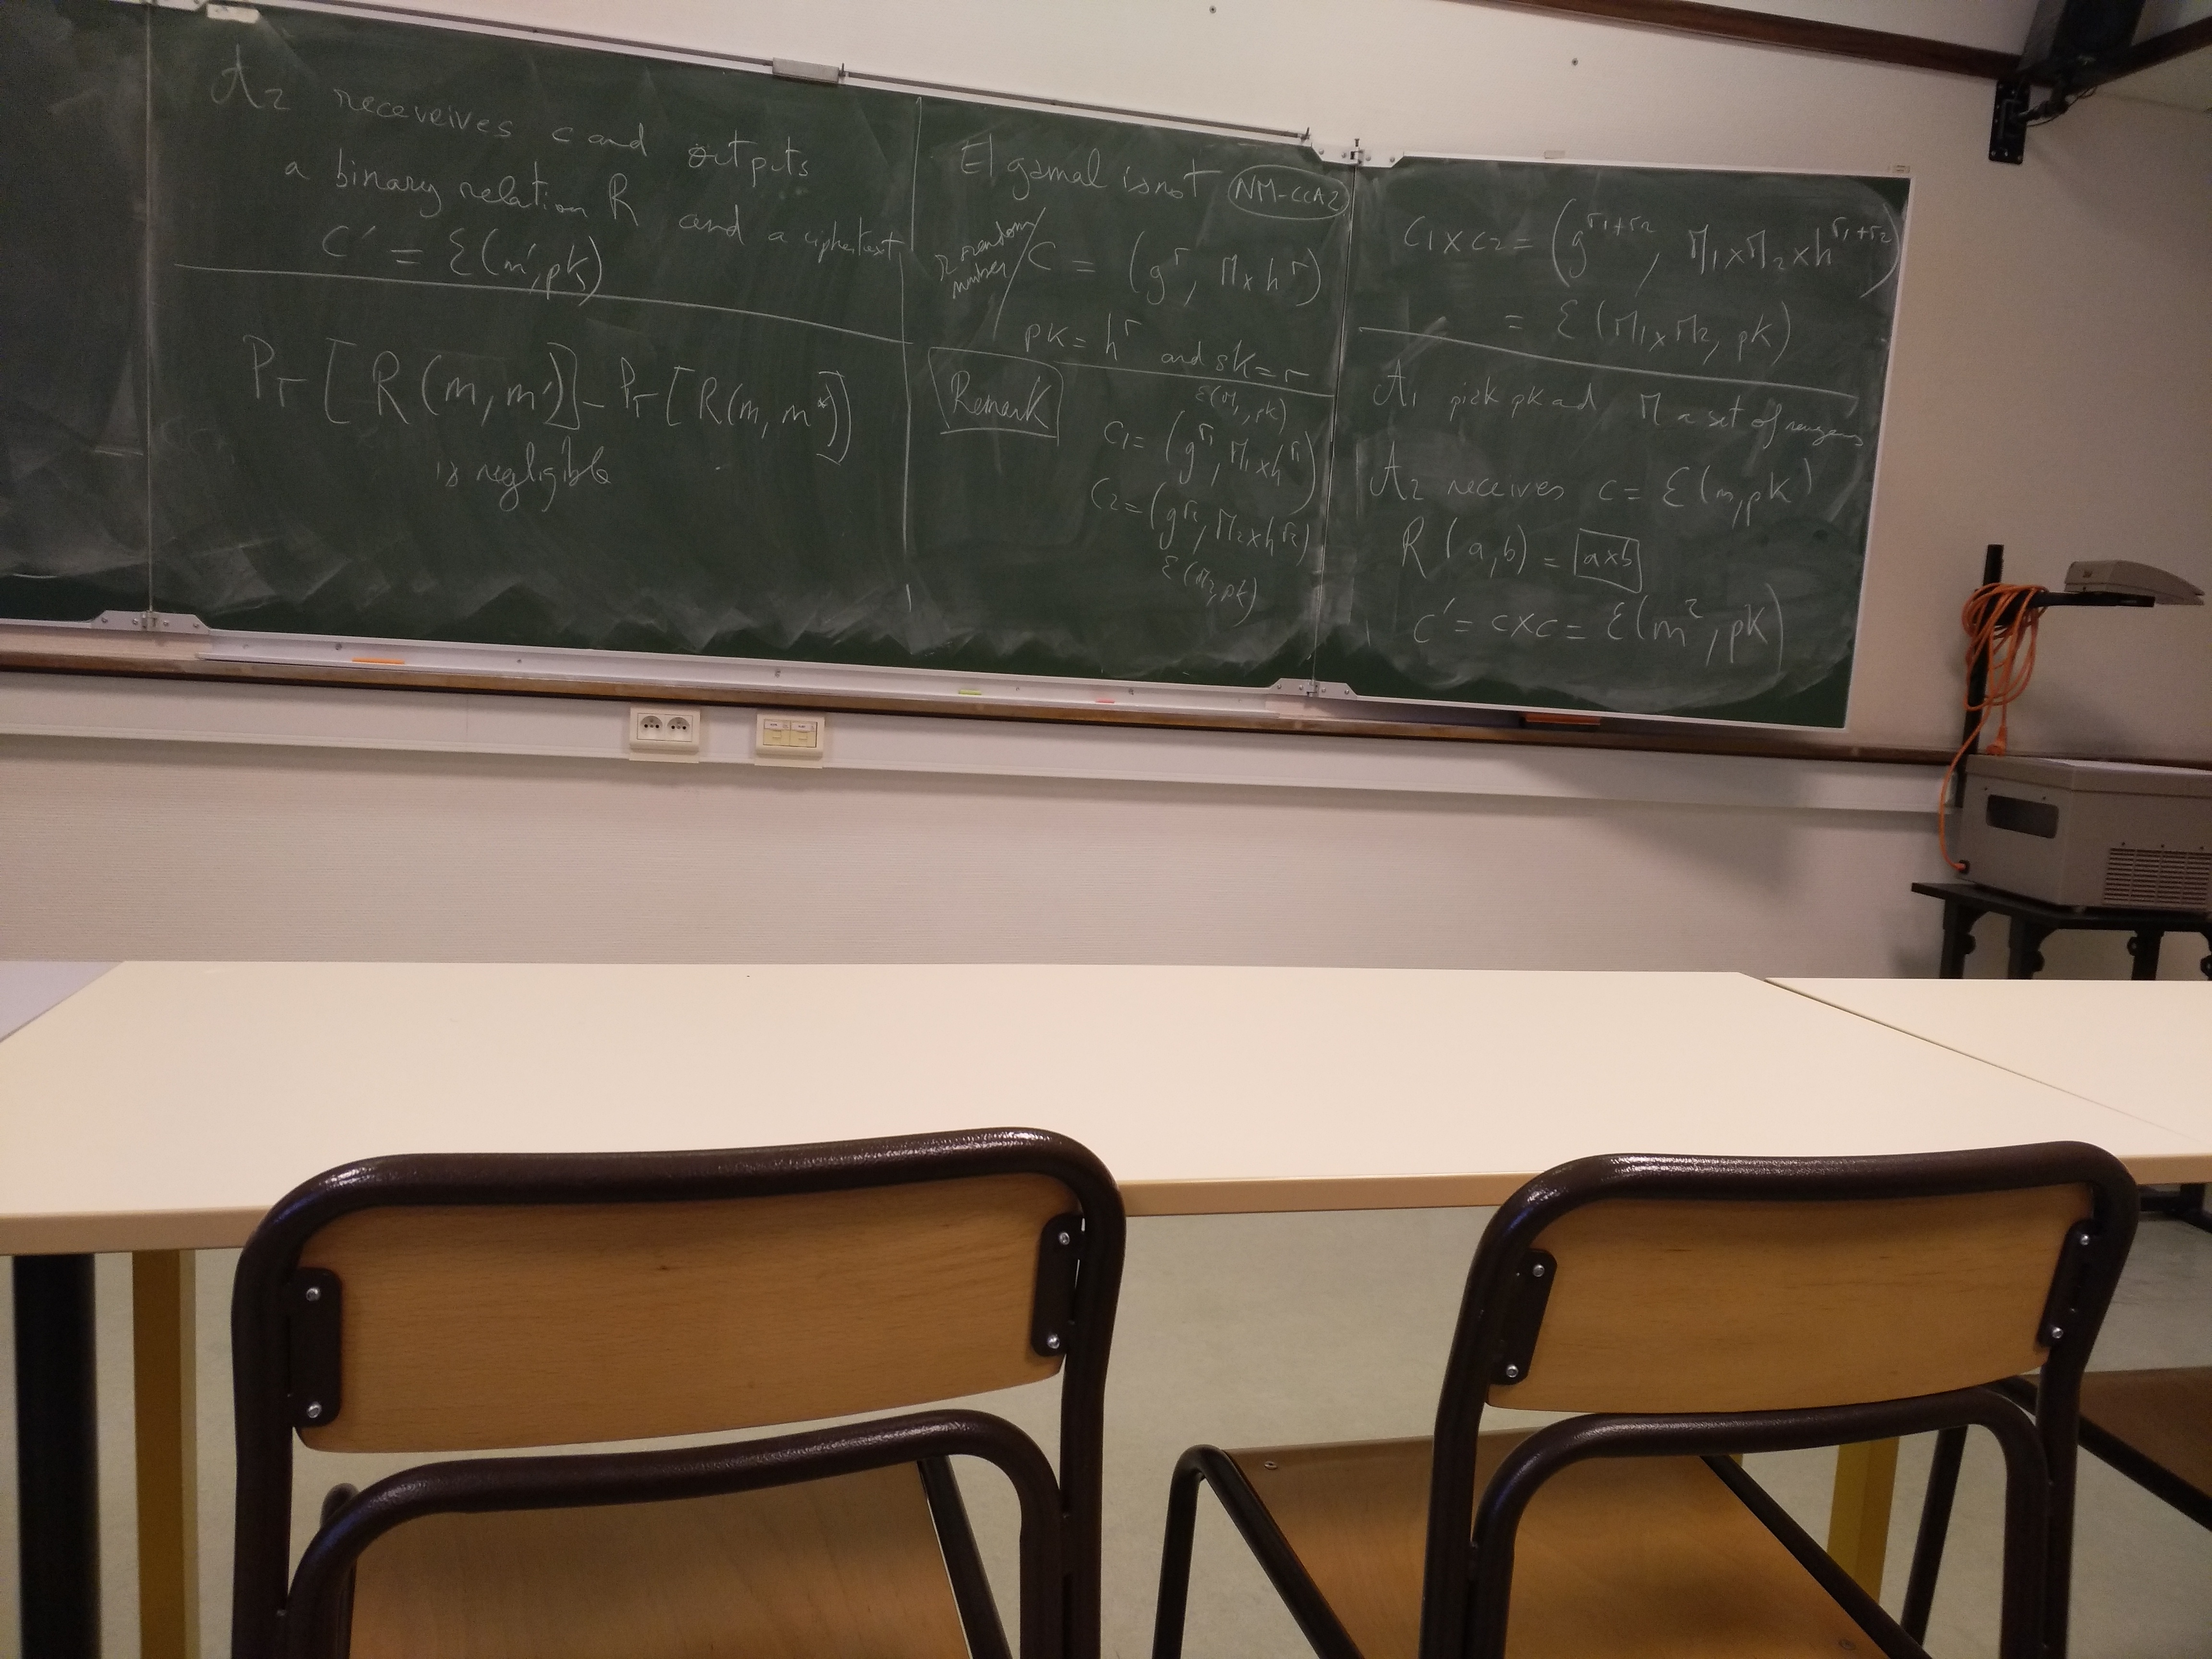 A2 receveives c and outputs
a binary relation R and a ciphertext
C' = ℰ(m', pk)
Pr [R(m, m')] - Pr [R(m, m*)]
is negligible
El gamal is not NM-CCA2
r random
number
C = (g^r, M x h^r)
pk = h^r and sk = r
Remark
ℰ(M1, pk)
C1 = (g^r1, M1 x h^r1)
C2 = (g^r2, M2 x h^r2)
ℰ(M2, pk)
C1 x C2 = (g^r1+r2, M1 x M2 x h^r1+r2)
= ℰ(M1 x M2, pk)
A1 pick pk and M a set of
A2 receives c = ℰ(m, pk)
R(a, b) = a x b
C' = c x c = ℰ(m², pk)